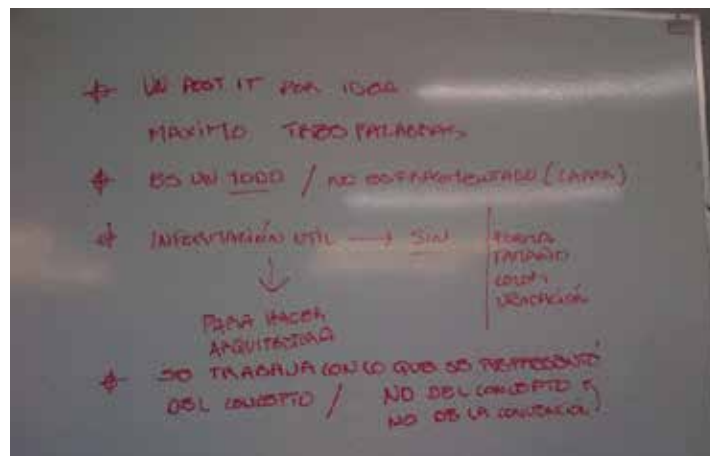 UN POST IT POR IDEA
MAXIMO TRES PALABRAS
ES UN TODO / NO ES FRAGMENTADO (CAPAS)
INFORMACIÓN UTIL → SIN
FORMA
TAMAÑO
COLOR
UBICACIÓN
PARA HACER
ARQUITECTURA
SE TRABAJA CON LO QUE SE REPRESENTÓ
DEL CONCEPTO / NO DEL CONCEPTO Y
NO DE LA CONVENCION